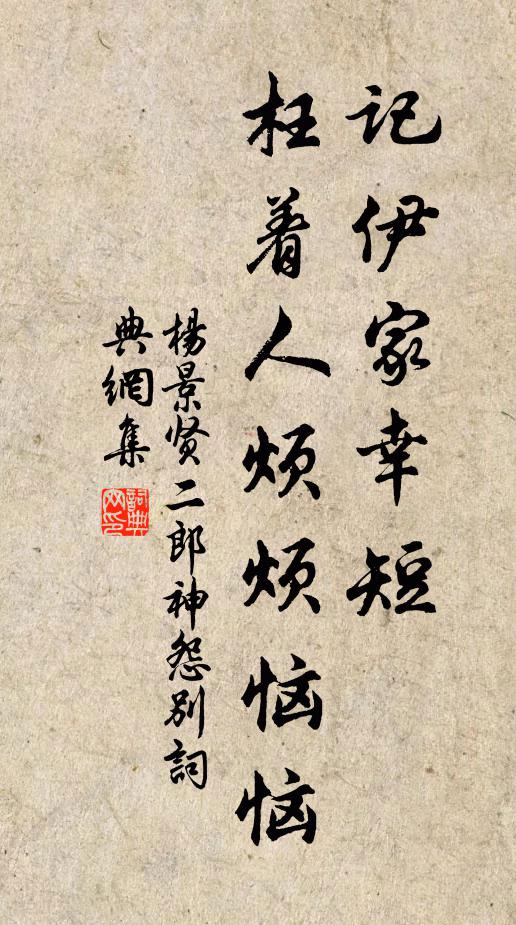 记伊家幸短
枉着人烦烦恼恼
杨景贤二郎神怨别詞
典網集
詞典网印